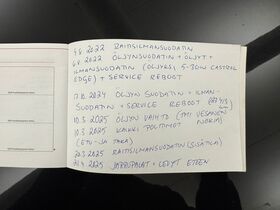 4.8.2022 RAITISILMANSUODATIN
6.8.2022 ÖLJYNSUODATIN + ÖLJYT +
ILMANSUODATIN (ÖLJYKSI 5-30W CASTROL
EDGE) + SERVICE REBOOT
17.10.2024 ÖLJYN SUODATIN + ILMAN-
SUODATIN + SERVICE REBOOT
10.3.2025 ÖLJYN VAIHTO (TMI VESANEN
10.3.2025 KAIKKI POLTTIMOT
(ETU- JA TAKA)
20.3.2025 RAITISILMANSUODATIN (SISÄTILA)
21.4.2025 JARRUPALAT + LEVYT ETEEN